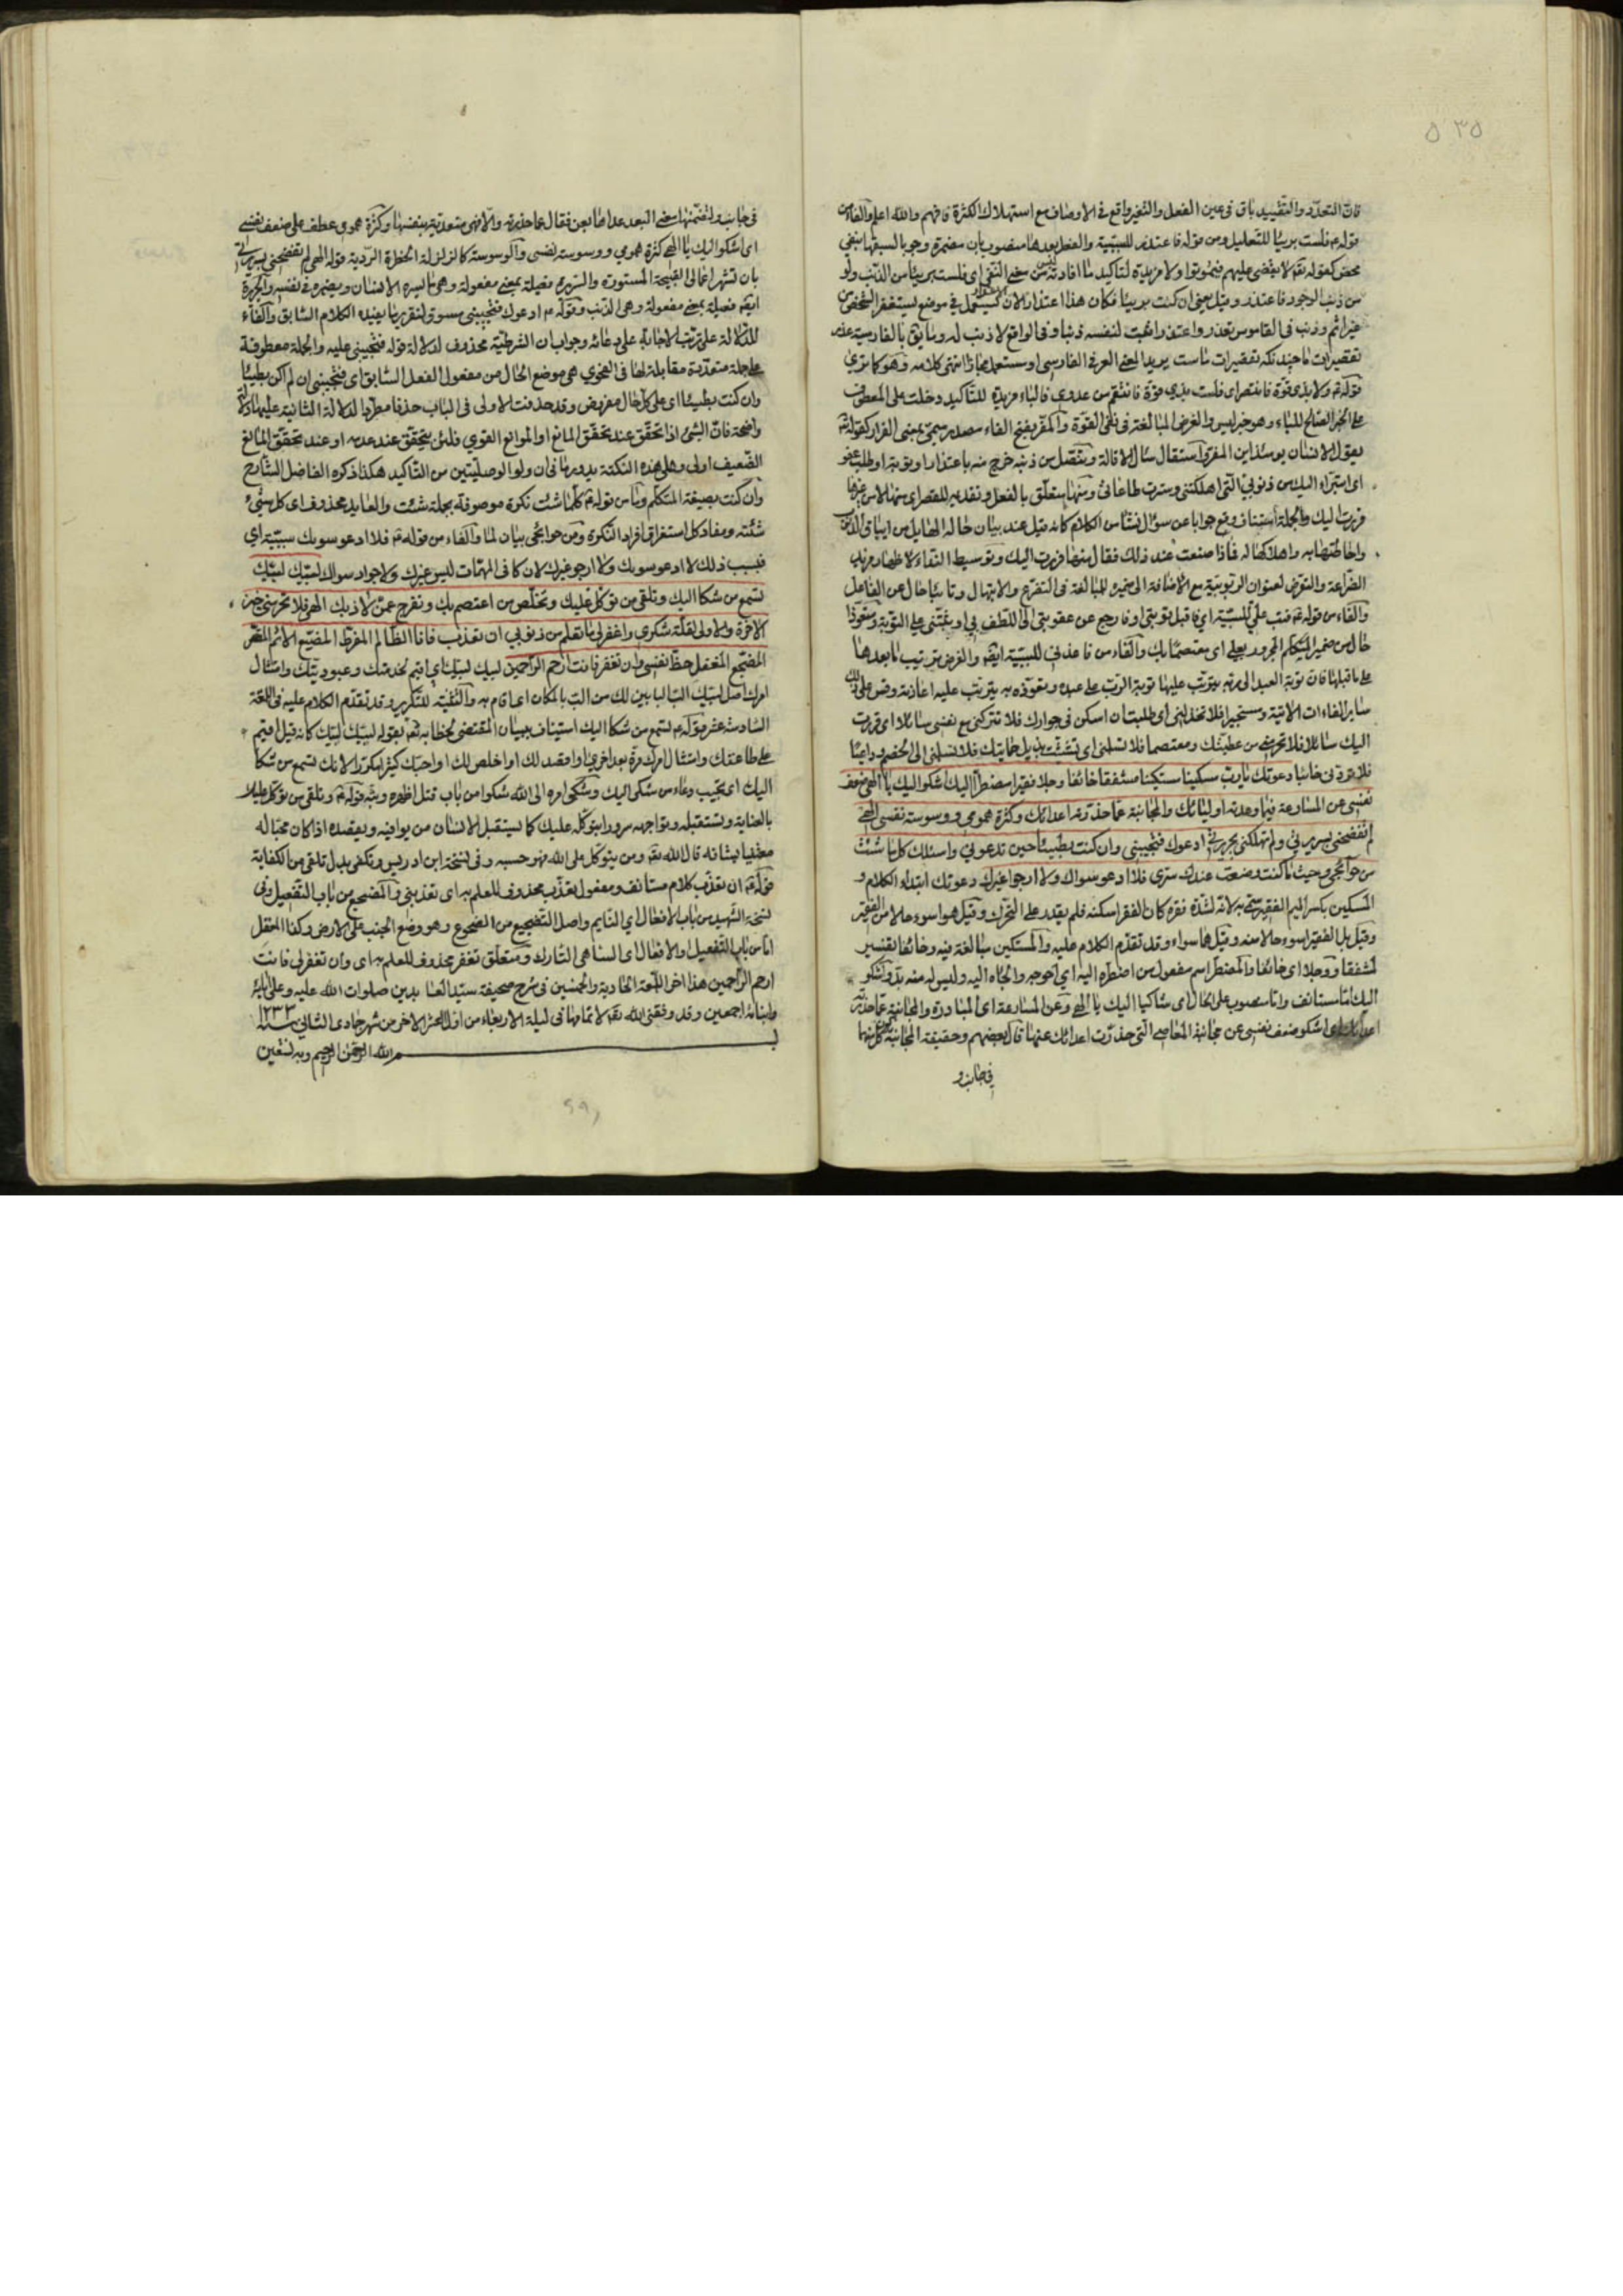 ٥٣٥
فان التعدد والتقييد باق فى عين الفعل والتغير واقع فى الاوصاف مع استهلاك الكثرة فافهم والله اعلم والفاء من
قوله ع فلست بريئا للتعليل ومن قوله فاعتذر للسببية والفعل بعدها منصوب بان مضمرة وجوبا لسبقها بنفى
محض كقوله تعالى لا يقضى عليهم فيموتوا ولا مزيدة لتأكيد ما افادته ليس من معنى النفى اى فلست بريئا من الذنب ولو
من ذنب الوجود فاعتذر وقيل يعنى ان كنت بريئا فكان هذا اعتذارا لان الاعتذار يستعمل فى موضع يستغفر الشخص من
غير اثم وذنب فى القاموس تعذر واعتذر واثبت لنفسه ذنبا وفى الواقع لا ذنب له وما بق بالفارسية عذر
تقصيرات ما چندانكه تقصيرات ماست يريد المعنى العرفى الفارسى او يستعمل مجازا انتهى كلامه وهو كما ترى
قوله ع ولا بذى قوة فانتصر اى فلست بذى قوة فانتقم من عدوى فالباء مزيدة للتأكيد دخلت على المعطوف
على الخبر الصالح للباء وهو خبر ليس والغرض المبالغة فى نفى القوة والمفر بفتح الفاء مصدر ميمى بمعنى الفرار كقوله تعالى
يقول الانسان يومئذ اين المفر واستقال سئال الاقالة وتنصل من ذنبه خرج منه باعتذار او توبة او طلب عفو
اى استبراء اليك من ذنوبى التى اهلكتنى وسترت طاعاتى ومنها متعلق بالفعل وتقديمه للقصر اى منها لا من غيرها
فررت اليك والجملة استيناف وقع جوابا عن سؤال نشأ من الكلام كانه قيل عند بيان حاله الهايل من ايباق الذنوب
واحاطتها به واهلاكها له فماذا صنعت عند ذلك فقال منها فررت اليك وتوسيط النداء لاظهار مزيد
الضراعة والتعرض لعنوان الربوبية مع الاضافة الى ضميره للمبالغة فى التضرع والابتهال وتائبا حال عن الفاعل
والفاء من قوله ع فتب على للسببية اى فاقبل توبتى او فارجع عن عقوبتى الى اللطف بى او ثبتنى على التوبة ومتعوذا
حال من ضمير المتكلم المجرور بعلى اى معتصما بك والفاء من فاعذنى للسببية ايضا والغرض ترتيب ما بعدها
على ما قبلها فان توبة العبد الى ربه يترتب عليها توبة الرب على عبده وتعوذه به يترتب عليه اعاذته وقس على ذلك
ساير الفاءات الاتية ومستجيرا فلا تخذلنى اى طلبت ان اسكن فى جوارك فلا تتركنى مع نفسى سائلا اى فررت
اليك سائلا فلا تحرمنى من عطيتك ومعتصما فلا تسلمنى اى تشبثت بذيل حمايتك فلا تسلمنى الى الخصم وداعيا
فلا تردنى خائبا دعوتك يا رب مسكينا مستكينا مشفقا خائفا وجلا فقيرا مضطرا اليك اشكو اليك يا الهى ضعف
نفسى عن المسارعة فيما وعدته اوليائك والمجانبة عما حذرته اعدائك وكثرة همومى ووسوسة نفسى الهى
لم تفضحنى بسريرتى ولم تهلكنى بجريرتى ادعوك فتجيبنى وان كنت بطيئا حين تدعونى واسئلك كلما شئت
من حوائجى وحيث ما كنت وضعت عندك سرى فلا ادعو سواك ولا ارجو غيرك دعوتك ابتداء الكلام و
المسكين بكسر الميم الفقير سمى به لانه لشدة فقره كان الفقر اسكنه فلم يقدر على التحرك وقيل هو اسوء حالا من الفقير
وقيل بل الفقير اسوء حالا منه وقيل هما سواء وقد تقدم الكلام عليه والمستكين مبالغة فيه وخائفا تفسير
لمشفقا ووجلا اى خائفا والمضطر اسم مفعول من اضطره اليه اى احوجه والجاه اليه وليس له منه بد واشكو
اليك اما مستانف واما منصوب على الحال اى شاكيا اليك يا الهى وعن المسارعة اى المبادرة والمجانبة عما حذرته
اعدائك اى اشكو ضعف نفسى عن مجانبة المعاصى التى حذرت اعدائك عنها قال بعضهم وحقيقة المجانبة كون كل منهما
فى جانب و
فى جانب ولتضمنها معنى البعد عداها بعن فقال عما حذرته والا فهى متعدية بنفسها وكثرة همومى عطف على ضعف نفسى
اى اشكو اليك يا الهى كثرة همومى ووسوسة نفسى والوسوسة كالزلزلة الخطرة الردية قوله الهى لم تفضحنى بسريرتى
بان تشهر اعمالى القبيحة المستورة والسريرة فعيلة بمعنى مفعولة وهى ما يسره الانسان ويضمره فى نفسه والجريرة
ايضا فعيلة بمعنى مفعولة وهى الذنب وقوله ع ادعوك فتجيبنى مسوق لتقرير ما يفيده الكلام السابق والفاء
للدلالة على ترتب الاجابة على دعائه وجواب ان الشرطية محذوف لدلالة قوله فتجيبنى عليه والجملة معطوفة
على جملة متعددة مقابلة لها فى الفحوى هى موضع الحال من مفعول الفعل السابق اى فتجيبنى ان لم اكن بطيئا
وان كنت بطيئا اى على كل حال مفروض وقد حذفت الاولى فى الباب حذفا مطردا لدلالة الثانية عليها دلالة
واضحة فان الشئ اذا تحقق عند تحقق المانع او الموانع القوى فلئن يتحقق عند عدمه او عند تحقق المانع
الضعيف اولى وعلى هذه النكتة يدور ما فى ان ولو الوصليتين من التأكيد هكذا ذكره الفاضل الشارح
وان كنت بصيغة المتكلم وما من قوله ع كلما شئت نكرة موصوفة بجملة شئت والعايد محذوف اى كل شئ
شئته ومفاد كل استغراق افراد النكرة ومن حوائجى بيان لما والفاء من قوله ع فلا ادعو سويك سببية اى
فبسبب ذلك لا ادعو سويك ولا ارجو غيرك لان كافى المهمات ليس غيرك ولا جواد سواك لبيك لبيك
تسمع من شكا اليك وتلقى من توكل عليك وتخلص من اعتصم بك وتفرج عمن لاذ بك الهى فلا تحرمنى خير
الاخرة والاولى لقلة شكرى واغفر لى ما تعلم من ذنوبى ان تعذب فانا الظالم المفرط المضيع الاثم المقصر
المضجع المغفل حظ نفسى وان تغفر فانت ارحم الراحمين لبيك لبيك اى اقيم لخدمتك وعبوديتك وامتثال
امرك اصل لبيك الب البابين لك من الب بالمكان اى اقام به والتثنية للتكرير وقد تقدم الكلام عليه فى اللمعة
السادسة عشر قوله ع تسمع من شكا اليك استيناف ببيان المقتضى لخطابه تعالى بقوله لبيك لبيك كانه قيل اقيم
على طاعتك وامتثال امرك مرة بعد اخرى او اقصد لك او اخلص لك او احبك كثيرا مكررا لانك تسمع من شكا
اليك اى تجيب دعاء من شكى اليك وشكى امره الى الله شكوا من باب قتل اظهره وبثه قوله ع وتلقى من توكل عليك
بالعناية وتستقبله وتواجهه سرورا بتوكله عليك كما يستقبل الانسان من يوافيه ويقصده اذا كان محبا له
معتنيا بشانه قال الله تعالى ومن يتوكل على الله فهو حسبه وفى نسخة ابن ادريس وتكفى بدل تلقى من الكفاية
قوله ع ان تعذب كلام مستانف ومفعول تعذب محذوف للعلم به اى تعذبنى والمضجع من باب التفعيل وفى
نسخة الشهيد من باب الافعال اى النايم واصل التضجيع من الضجوع وهو وضع الجنب على الارض وكذا المغفل
اما من باب التفعيل او الافعال اى الساهى التارك ومتعلق تغفر محذوف للعلم به اى وان تغفر لى فانت
ارحم الراحمين هذا اخر اللمعة الحادية والخمسين فى شرح صحيفة سيد العابدين صلوات الله عليه وعلى ابائه
وابنائه اجمعين وقد وفقنى الله تعالى لاتمامها فى ليلة الاربعاء من اول العشر الاخر من شهر جمادى الثانى سنة ١٢٣٣
بسم الله الرحمن الرحيم وبه نستعين